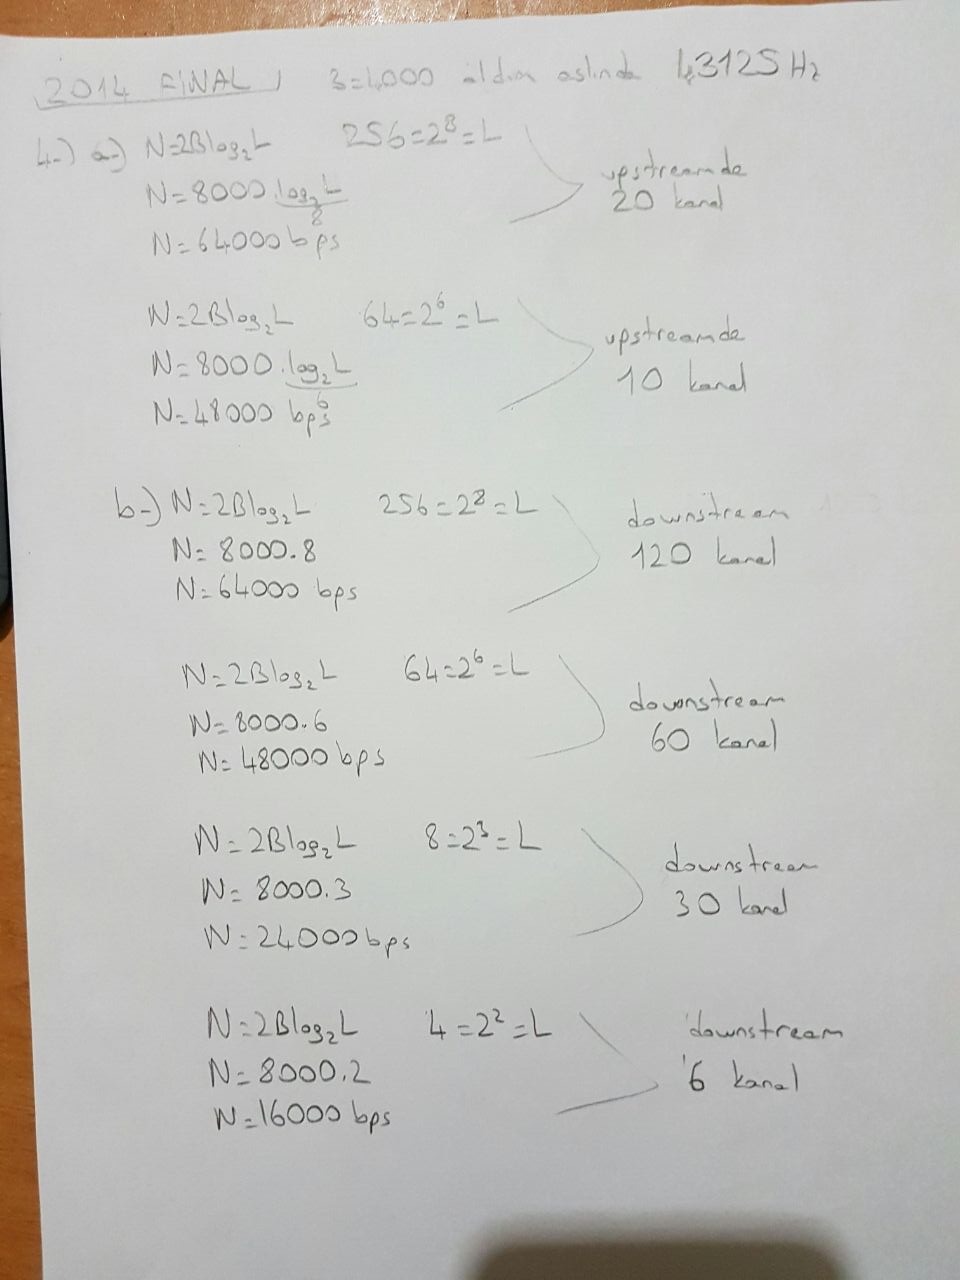 2014 FİNAL B=4000 aldım aslında 4,3125 Hz
4-) a-) N=2Blog₂L 256=2⁸=L
N=8000.log₂L
8
N=64000 bps
upstreamde
20 kanal
N=2Blog₂L 64=2⁶=L
N=8000.log₂L
6
N=48000 bps
upstreamde
10 kanal
b-) N=2Blog₂L 256=2⁸=L
N=8000.8
N=64000 bps
downstream
120 kanal
N=2Blog₂L 64=2⁶=L
N=8000.6
N=48000 bps
downstream
60 kanal
N=2Blog₂L 8=2³=L
N=8000.3
N=24000 bps
downstream
30 kanal
N=2Blog₂L 4=2²=L
N=8000.2
N=16000 bps
downstream
6 kanal